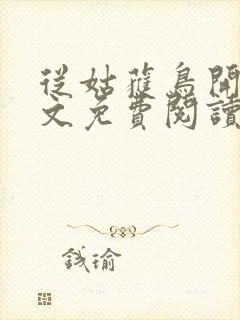 從姑蘿鳥開
文免費閱讀
錢瑜